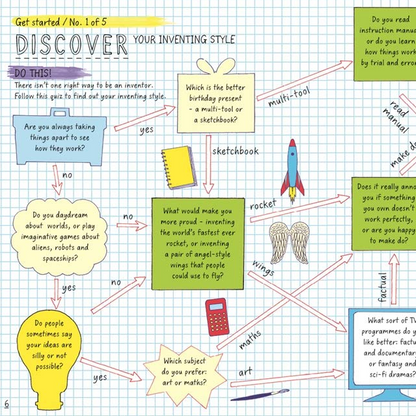 Get started / No. 1 of 5
DISCOVER YOUR INVENTING STYLE
DO THIS!
There isn't one right way to be an inventor.
Follow this quiz to find out your inventing style.
Are you always taking
things apart to see
how they work?
yes
no
Which is the better
birthday present
– a multi-tool or
a sketchbook?
multi-tool
sketchbook
Do you read
instruction manu
or do you learn
how things work
by trial and erro
read
manual
make do
Do you daydream
about worlds, or play
imaginative games about
aliens, robots and
spaceships?
no
yes
What would make you
more proud – inventing
the world's fastest ever
rocket, or inventing
a pair of angel-style
wings that people
could use to fly?
rocket
wings
Does it really anno
you if something
you own doesn't
work perfectly,
or are you happy
to make do?
factual
Do people
sometimes say
your ideas are
silly or not
possible?
no
yes
Which subject
do you prefer:
art or maths?
maths
art
What sort of TV
programmes do yo
like better: factu
and documentar
or fantasy and
sci-fi dramas?
6